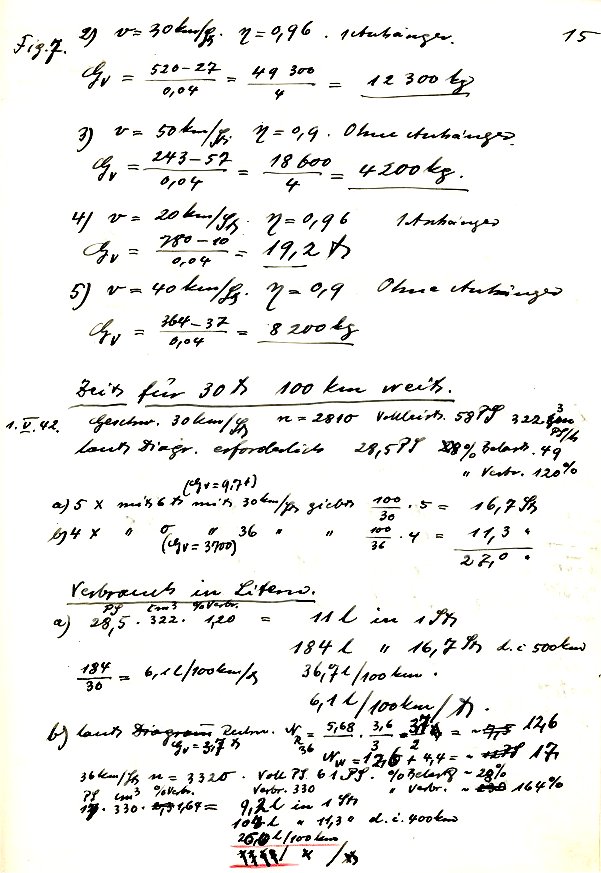 Fig. 7. 2) v = 30 km/h. η = 0,96. 1 Anhänger. 15
Gv = 520-27 / 0,04 = 49 300 / 4 = 12 300 kg
3) v = 50 km/h. η = 0,9. Ohne Anhänger.
Gv = 243-57 / 0,04 = 18 600 / 4 = 4200 kg.
4) v = 20 km/h. η = 0,96 1 Anhänger
Gv = 780-10 / 0,04 = 19,2 t
5) v = 40 km/h. η = 0,9 Ohne Anhänger
Gv = 364-37 / 0,04 = 8 200 kg
Zeit für 30 t 100 km weit.
1. V. 42. Geschw. 30 km/h n = 2810 Vollleist. 58 PS 322 cm³ PS/h
laut Diagr. erforderlich 28,5 PS % Belast. 49
" Verbr. 120%
(Gv = 9,7 t)
a) 5 x mit 6 t mit 30 km/h giebt 100/30 · 5 = 16,7 St
b) 4 x " " 36 " " 100/36 · 4 = 11,3 "
(Gv = 3700)
27,0 "
Verbrauch in Litern.
PS cm³ % Verbr.
a) 28,5 · 322 · 1,20 = 11 l in 1 St
184 l " 16,7 St d.i. 500 km
184/30 = 6,1 l/100 km/t 36,7 l/100 km.
6,1 l/100 km/t.
b) laut Diagramm N = 5,68 · 3,6 / 3 · 2 = ~ 12,6
Gv = 3,7 t 36
Nw = 12,6 + 4,4 = ~ 17
36 km/h n = 3320. Voll PS 61 PS. % Belast ~ 28%
PS cm³ % Verbr. Verbr. 330 " Verbr. ~ 164%
17 · 330 · 1,64 = 9,2 l in 1 St
" 11,3 " d.i. 400 km
l/100 km